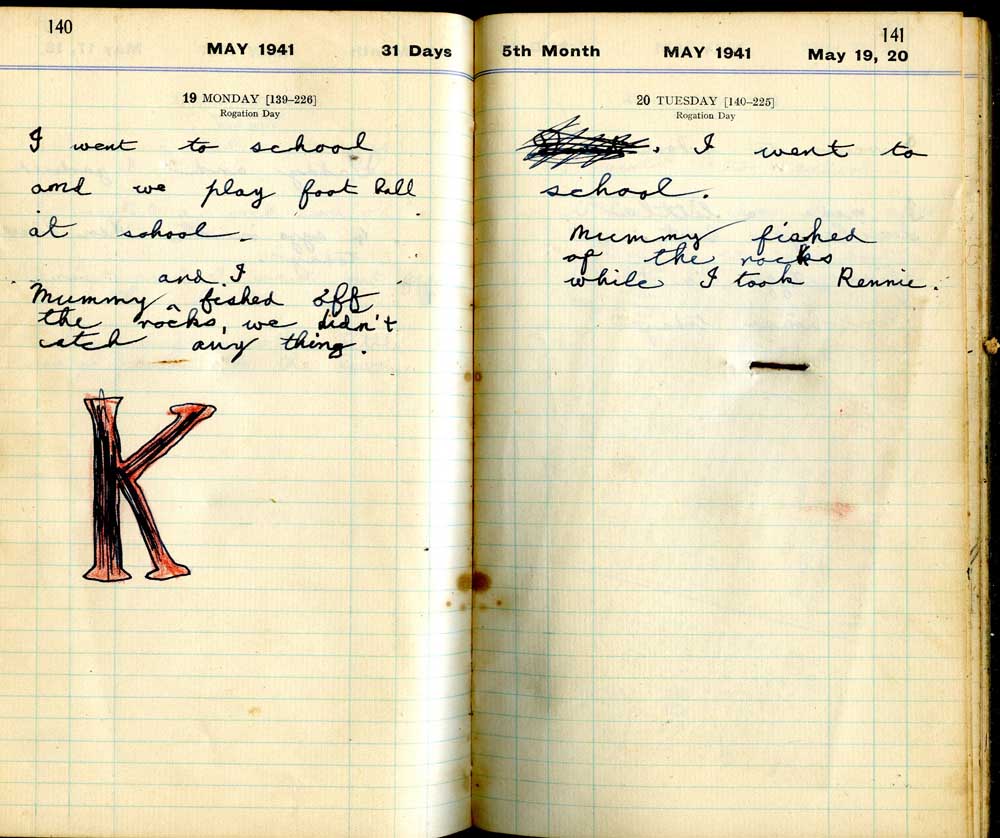 140
MAY 1941 31 Days
19 MONDAY [139–226]
Rogation Day
I went to school
and we play foot ball
at school.
and I
Mummy ^ fished off
the rocks, we didn't
catch any thing.
K
141
5th Month MAY 1941 May 19, 20
20 TUESDAY [140–225]
Rogation Day
. I went to
school.
Mummy fished
of the rocks
while I took Rennie.